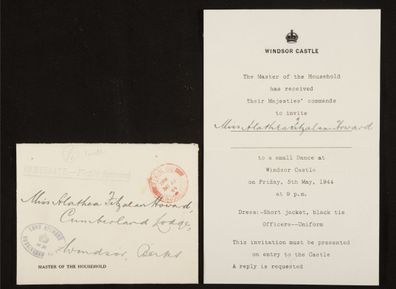 Miss Alathea Fitzalan Howard,
Cumberland Lodge,
Windsor, Berks
MASTER OF THE HOUSEHOLD
WINDSOR CASTLE
The Master of the Household
has received
Their Majesties' commands
to invite
Miss Alathea Fitzalan-Howard
to a small Dance at
Windsor Castle
on Friday, 5th May, 1944
at 9 p.m.
Dress:-Short jacket, black tie
Officers--Uniform
This invitation must be presented
on entry to the Castle
A reply is requested